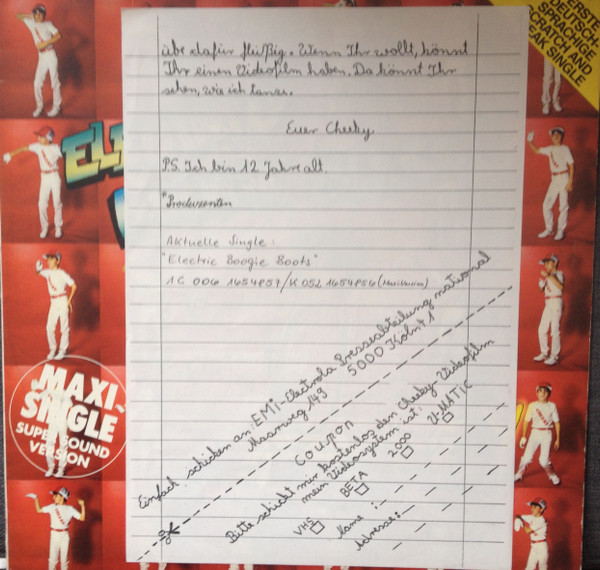 übe dafür fleißig. Wenn Ihr wollt, könnt
Ihr einen Videofilm haben. Da könnt Ihr
sehen, wie ich tanze.
Euer Cheeky
P.S. Ich bin 12 Jahre alt.
*Produzenten
Aktuelle Single:
"Electric Boogie Boots"
1C 006 1654857/K 052 1654856 (Maxiversion)
Einfach schicken an: EMI-Electrola Presseabteilung national
Maarweg 149 5000 Köln 41
Coupon
Bitte schickt mir kostenlos den Cheeky-Videofilm
mein Videosystem ist:
VHS BETA 2000 U-MATIC
Name:
Adresse:
ERSTE
DEUTSCH-
SPRACHIGE
SCRATCH AND
BREAK SINGLE
MAXI-
SINGLE
SUPER SOUND
VERSION